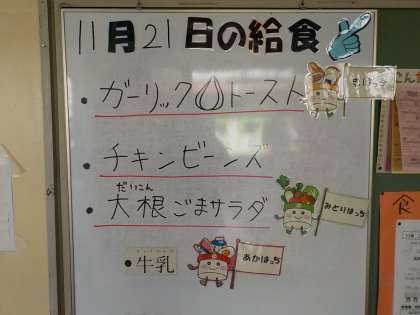 11月21日の給食
ガーリックトースト
きいはっち
チキンビーンズ
だいこん
大根ごまサラダ
みどりはっち
牛乳
あかはっち
食